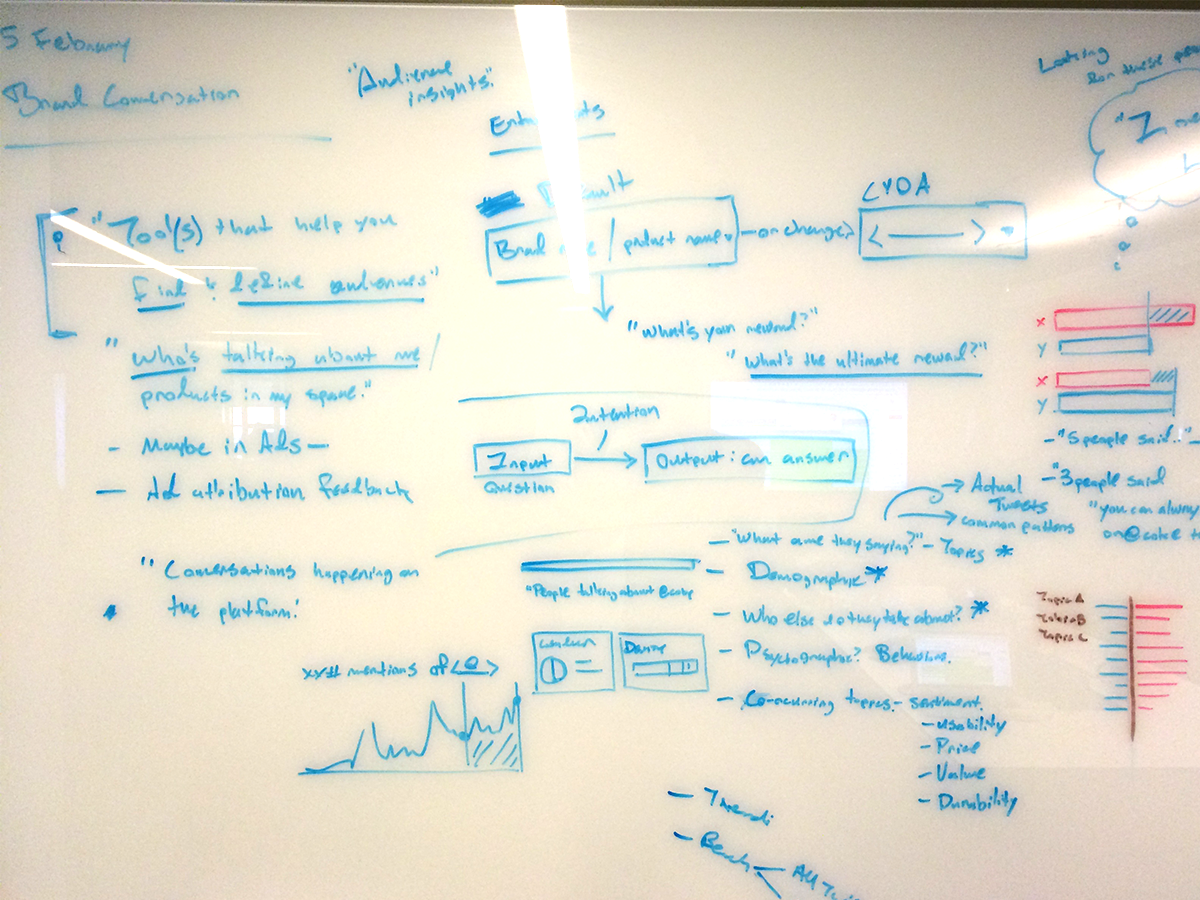 5 February
Brand Conversation
"Audience
insights."
"Tool(s) that help you
find & define audiences"
"Who's talking about me /
products in my space."
- Maybe in Ads -
- Ad attribution feedback
"Conversations happening on
the platform."
xx# mentions of <@>
Default
Brand / product name
- or change >
CYOA
< ——— >
"What's your reward?"
"What's the ultimate reward?"
Intention
Input
Question
Output: can answer
"People talking about @coke
Gender
- "What are they saying?" - Topics *
Actual
Tweets
common patterns
- Demographic *
- Who else do they talk about? *
- Psychographic? Behaviors.
- Co-occurring topics - sentiment.
- usability
- Price
- Value
- Durability
- Bench
Looking
for these
"I
X
Y
X
Y
- "5 people said.." -
- "3 people said
"you can always
on @coke
Topic A
Topic B
Topic C